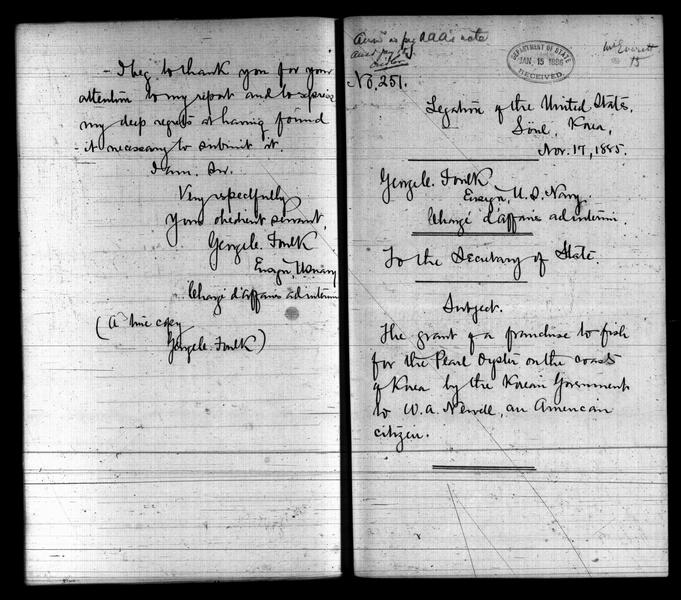 - I beg to thank you for your
attention to my report and to express
my deep regrets at having found
it necessary to submit it.
I am, Sir,
Very respectfully
Your obedient servant,
George C. Foulk
Ensign, U.S. Navy
Chargé d'affaires ad interim
(A true copy
George C. Foulk)
DEPARTMENT OF STATE
JAN. 15 1886
RECEIVED.
Mr Everett
15
No. 251.
Legation of the United States,
Söul, Korea,
Nov. 17, 1885.
George C. Foulk
Ensign, U.S. Navy
Chargé d'affaires ad interim.
To the Secretary of State.
Subject.
The grant of a franchise to fish
for the Pearl Oyster on the coasts
of Korea by the Korean Government
to W. A. Newell, an American
citizen.